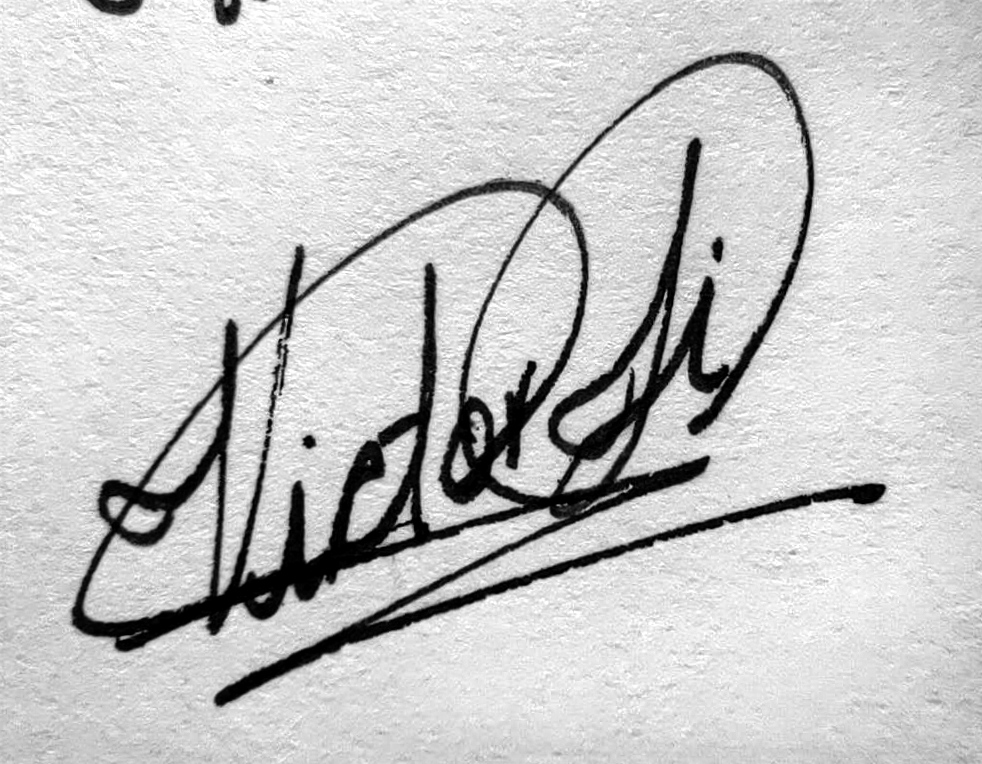 Victor Li